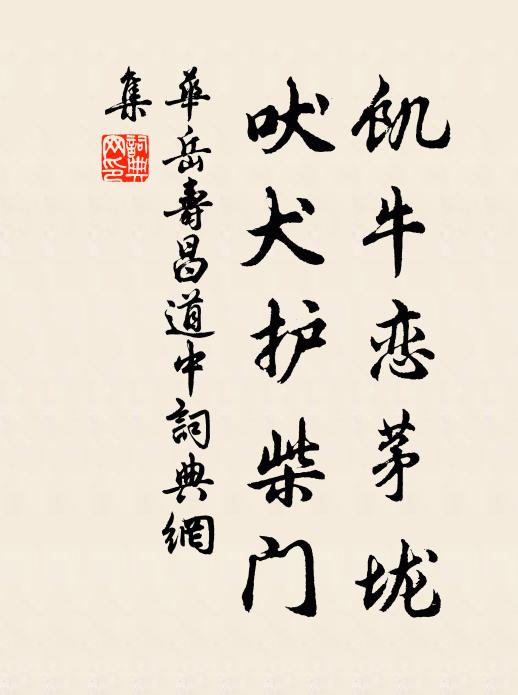 饥牛恋茅垅
吠犬护柴门
華岳壽昌道中詞典網
集
詞典
网印